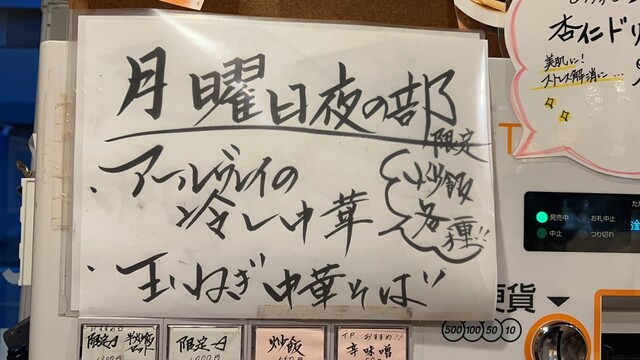 月曜日夜の部
限定
・アールグレイの
冷し中華
小炒飯
各種!!
・玉ねぎ中華そば
杏仁ド
美肌に!
ストレス解消に…
発売中
お札中止
中止
つり切れ
硬貨
500 100 50 10
限定
限定
炒飯
おすすめ
辛味噌